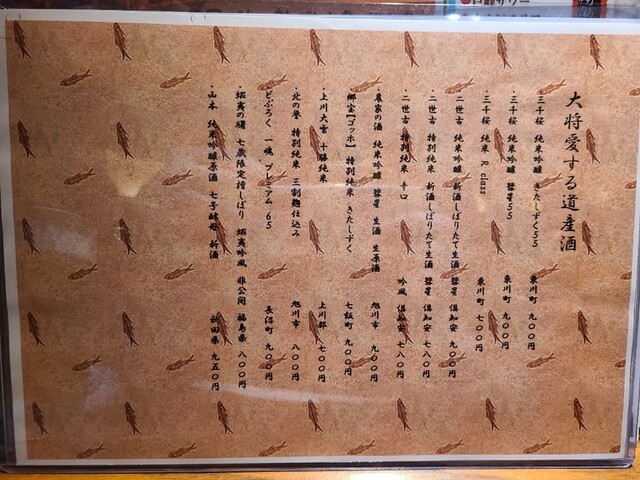 大将愛する道産酒
・三千桜 純米吟醸 きたしずく55 東川町 九〇〇円
・三千桜 純米吟醸 彗星55 東川町 九〇〇円
・三千桜 純米 R class 東川町 七〇〇円
・二世古 純米吟醸 新酒しぼりたて生酒 彗星 倶知安 九〇〇円
・二世古 特別純米 新酒しぼりたて生酒 彗星 倶知安 七八〇円
・二世古 特別純米 辛口 吟風 倶知安 七八〇円
・農家の酒 純米吟醸 彗星 生酒 生原酒 旭川市 九〇〇円
・郷宝【ゴッホ】 特別純米 きたしずく 七飯町 九〇〇円
・上川大雪 十勝純米 上川郡 七〇〇円
・北の誉 特別純米 三割麹仕込み 旭川市 八〇〇円
・どぶろく 一魂 プレミアム 65 長沼町 九〇〇円
・蝦夷の 七歳限定槽しぼり 蝦夷吟風 非公開 福島県 八〇〇円
・山本 純米吟醸原酒 七子酵母 新酒 秋田県 九五〇円